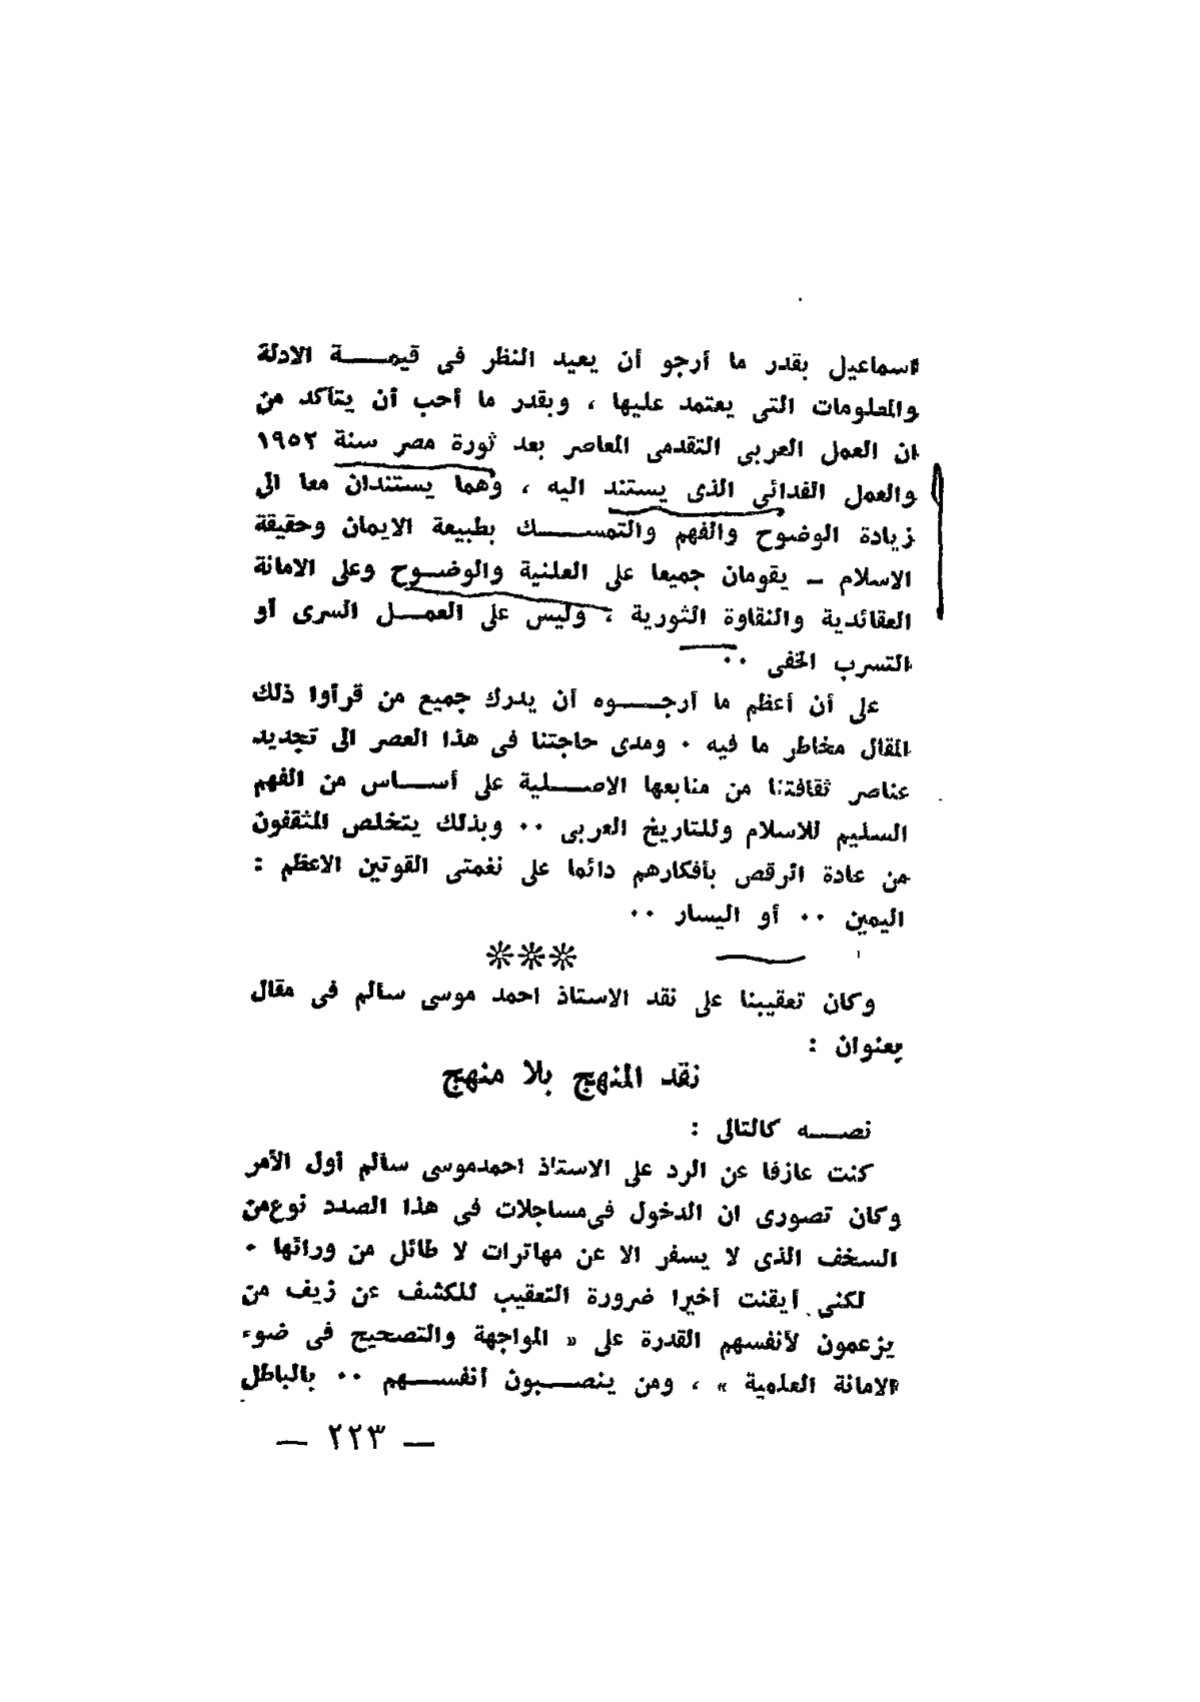 اسماعيل بقدر ما أرجو أن يعيد النظر فى قيمة الادلة
والمعلومات التى يعتمد عليها ، وبقدر ما أحب أن يتأكد من
ان العمل العربى التقدمى المعاصر بعد ثورة مصر سنة ١٩٥٢
والعمل الفدائى الذى يستند اليه ، وهما يستندان معا الى
زيادة الوضوح والفهم والتمسك بطبيعة الايمان وحقيقة
الاسلام ــ يقومان جميعا على العلنية والوضوح وعلى الامانة
العقائدية والنقاوة الثورية ، وليس على العمل السرى أو
التسرب الخفى ٠٠
على أن أعظم ما أرجوه أن يدرك جميع من قرأوا ذلك
المقال مخاطر ما فيه ٠ ومدى حاجتنا فى هذا العصر الى تجديد
عناصر ثقافتنا من منابعها الاصلية على أساس من الفهم
السليم للاسلام وللتاريخ العربى ٠٠ وبذلك يتخلص المثقفون
من عادة الرقص بأفكارهم دائما على نغمتى القوتين الاعظم :
اليمين ٠٠ أو اليسار ٠٠
***
وكان تعقيبنا على نقد الاستاذ احمد موسى سالم فى مقال
بعنوان :
نقد المنهج بلا منهج
نصه كالتالى :
كنت عازفا عن الرد على الاستاذ احمدموسى سالم أول الأمر
وكان تصورى ان الدخول فىمساجلات فى هذا الصدد نوعمن
السخف الذى لا يسفر الا عن مهاترات لا طائل من ورائها ٠
لكنى أيقنت أخيرا ضرورة التعقيب للكشف عن زيف من
يزعمون لأنفسهم القدرة على « المواجهة والتصحيح فى ضوء
الامانة العلمية » ، ومن ينصبون أنفسهم ٠٠ بالباطل
— ٢٢٣ —